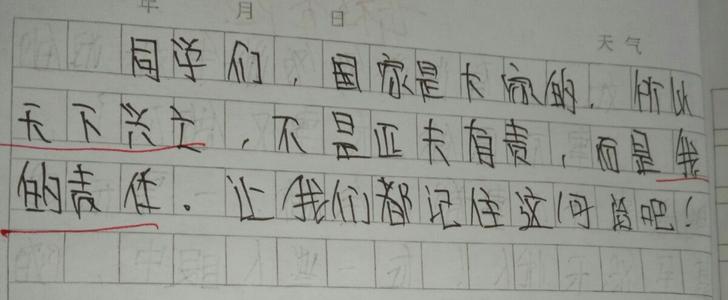 年 月 日
天气
同学们，国家是大家的，所以
天下兴立，不是亚夫有责，而是我
的责任。让我们都记住这何话吧！